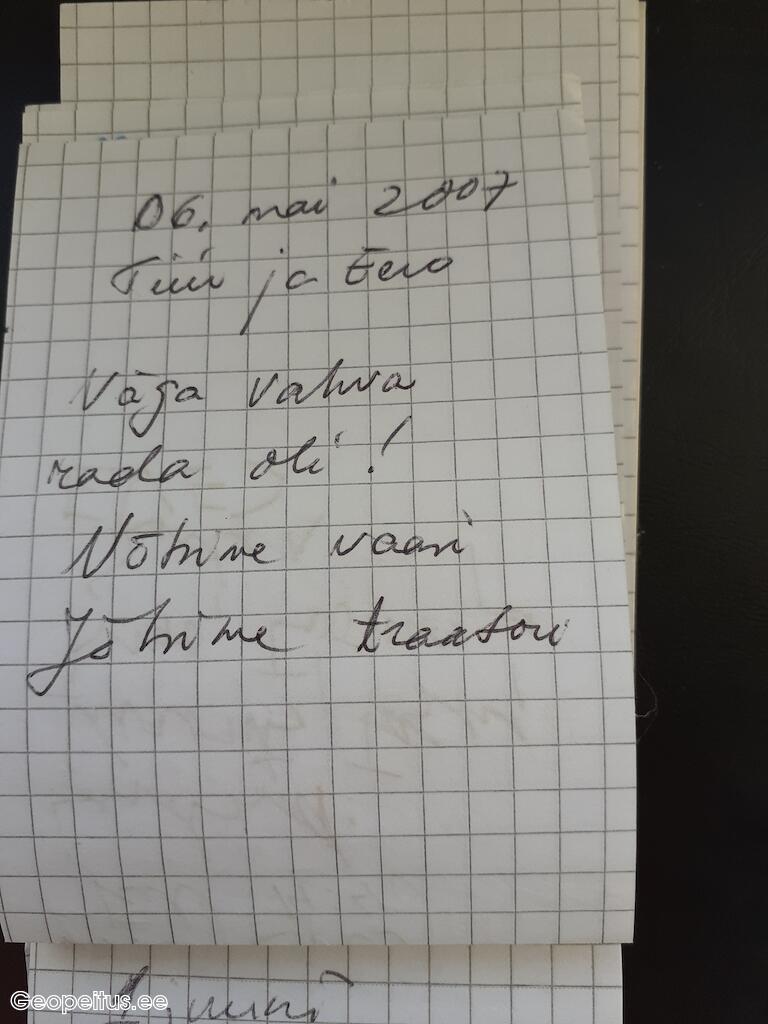 06. mai 2007
Tiiu ja Eero
Väga vahva
rada oli!
Võtsime vaari
Jõtsime
Geopeitus.ee